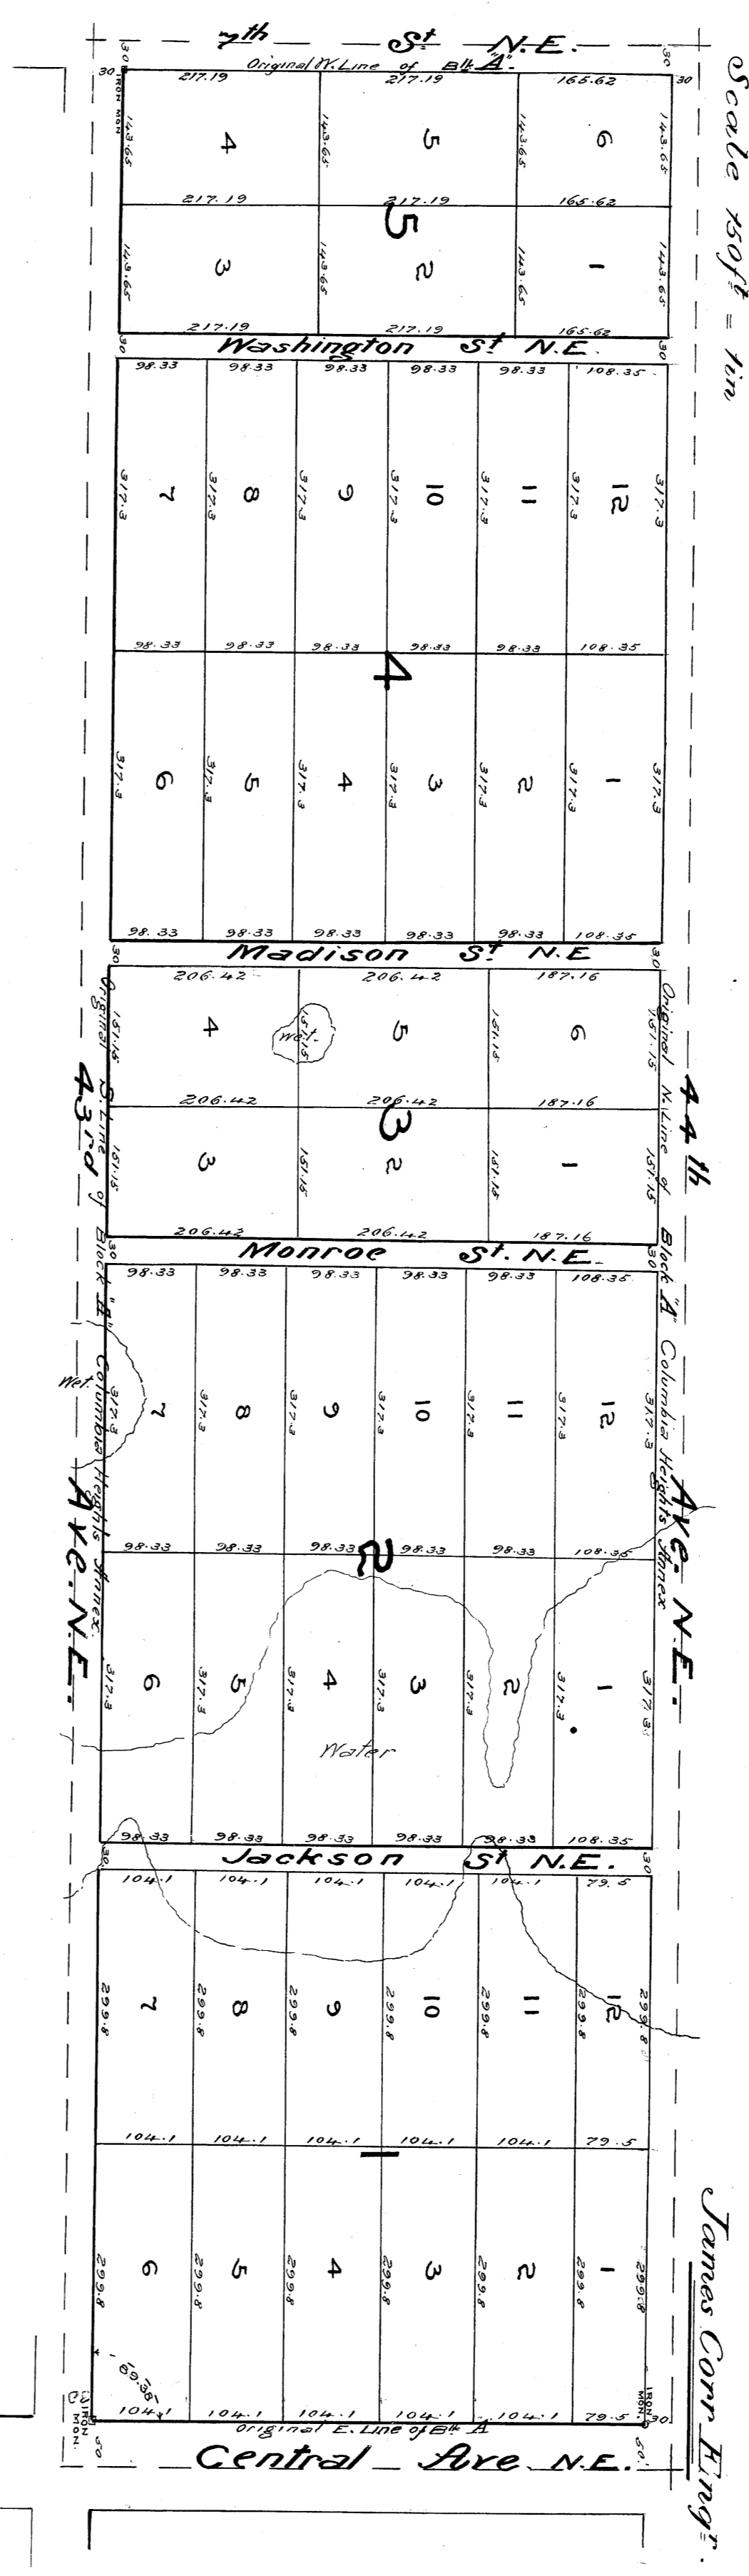 Scale 150ft = 1in
7th St N.E.
30 Original W. Line of Blk "A". 30
30 217.19 217.19 165.62 30
IRON MON
143.65 4 143.65 5 143.65 6 143.65
217.19 217.19 165.62
5
143.65 3 143.65 2 143.65 1 143.65
217.19 217.19 165.62
30 Washington St N.E. 30
98.33 98.33 98.33 98.33 98.33 108.35
317.3 7 317.3 8 317.3 9 317.3 10 317.3 11 317.3 12 317.3
98.33 98.33 98.33 98.33 98.33 108.35
4
317.3 6 317.3 5 317.3 4 317.3 3 317.3 2 317.3 1 317.3
98.33 98.33 98.33 98.33 98.33 108.35
30 Madison St N.E 30
206.42 206.42 187.16
151.15 4 151.15 5 151.15 6 151.15
Wet.
206.42 206.42 187.16
3
151.15 3 151.15 2 151.15 1 151.15
206.42 206.42 187.16
30 Monroe St. N.E. 30
98.33 98.33 98.33 98.33 98.33 108.35
Wet.
317.3 7 317.3 8 317.3 9 317.3 10 317.3 11 317.3 12 317.3
98.33 98.33 98.33 98.33 98.33 108.35
2
317.3 6 317.3 5 317.3 4 317.3 3 317.3 2 317.3 1 317.3
Water
98.33 98.33 98.33 98.33 98.33 108.35
30 Jackson St N.E. 30
104.1 104.1 104.1 104.1 104.1 79.5
299.8 7 299.8 8 299.8 9 299.8 10 299.8 11 299.8 12 299.8
104.1 104.1 104.1 104.1 104.1 79.5
1
299.8 6 299.8 5 299.8 4 299.8 3 299.8 2 299.8 1 299.8
104.1 104.1 104.1 104.1 104.1 79.5
IRON MON.
IRON MON. 30
Original E. Line of Blk A
50 Central Ave N.E. 50
44th Ave. N.E.
Original N. Line of Block "A" Columbia Heights Annex
43rd Ave. N.E.
Original S. Line of Block "A" Columbia Heights Annex.
James Corr Engr.